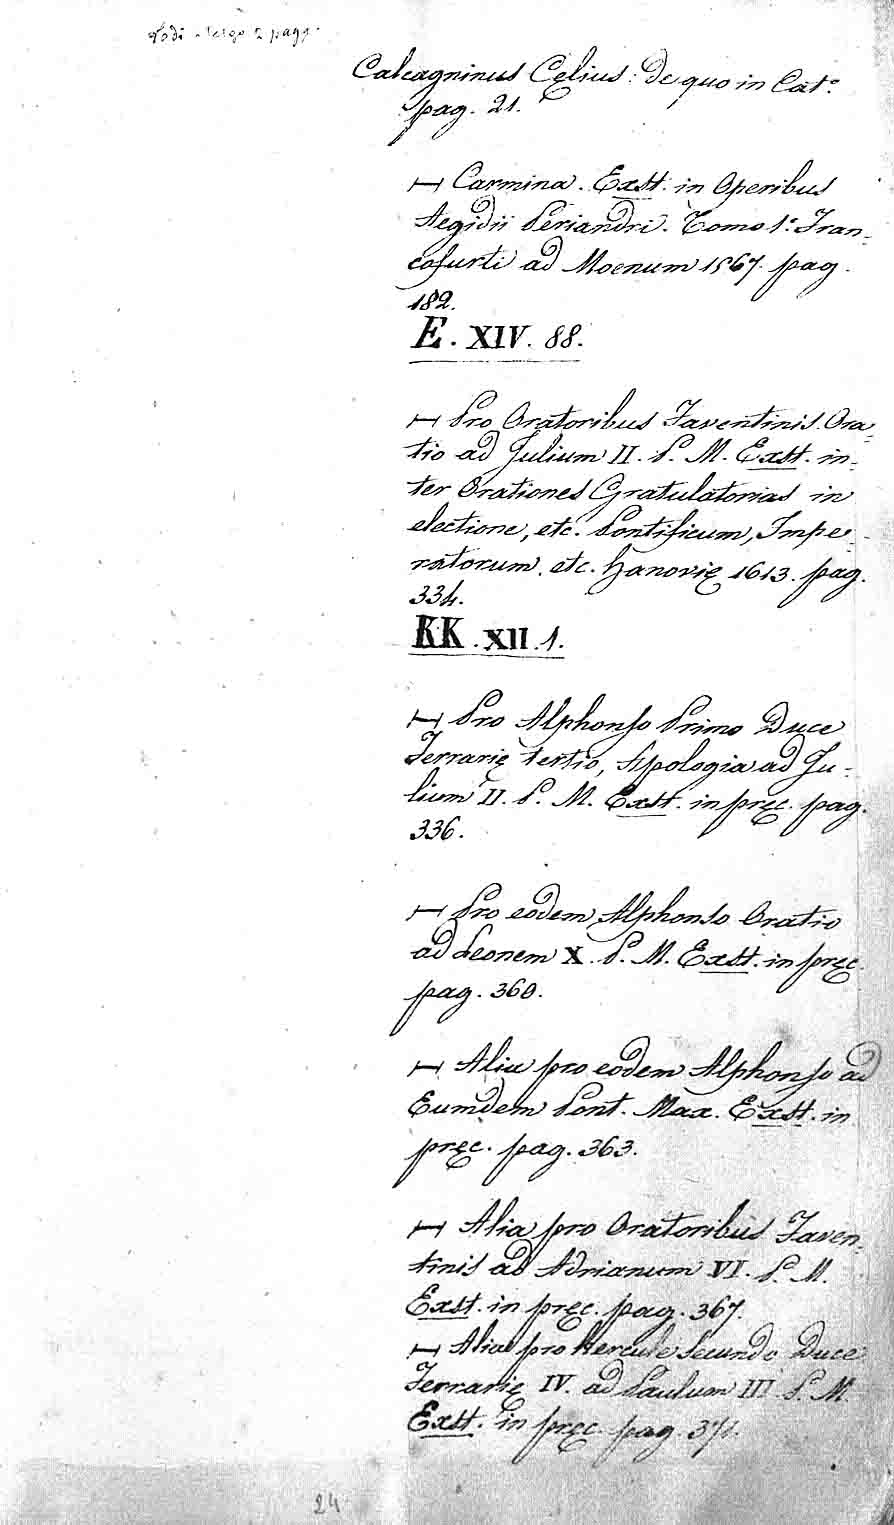 Vedi a tergo 2 pagg.
Calcagninus Cęlius: de quo in Cat.º
pag. 21.
— Carmina. Exst. in Operibus
Aegidii Periandri. Tomo 1.º Fran-
cofurti ad Moenum 1567. pag.
182.
E. XIV. 88.
— Pro Oratoribus Faventinis. Ora-
tio ad Julium II. P. M. Exst. in-
ter Orationes Gratulatorias in
electione, etc. Pontificum, Impe-
ratorum etc. Hanovię 1613. pag.
334.
KK. XII. 1.
— Pro Alphonso Primo Duce
Ferrarię tertio, Apologia ad Ju-
lium II. P. M. Exst. in pręc. pag.
336.
— Pro eodem Alphonso Oratio
ad Leonem X. P. M. Exst. in pręc.
pag. 360.
— Alia pro eodem Alphonso ad
Eumdem Pont. Max. Exst. in
pręc. pag. 363.
— Alia pro Oratoribus Faven-
tinis ad Adrianum VI. P. M.
Exst. in pręc. pag. 367.
— Alia pro Hercule Secundo Duce
Ferrarię IV. ad Paulum III. P. M.
Exst. in pręc. pag. 371.
24